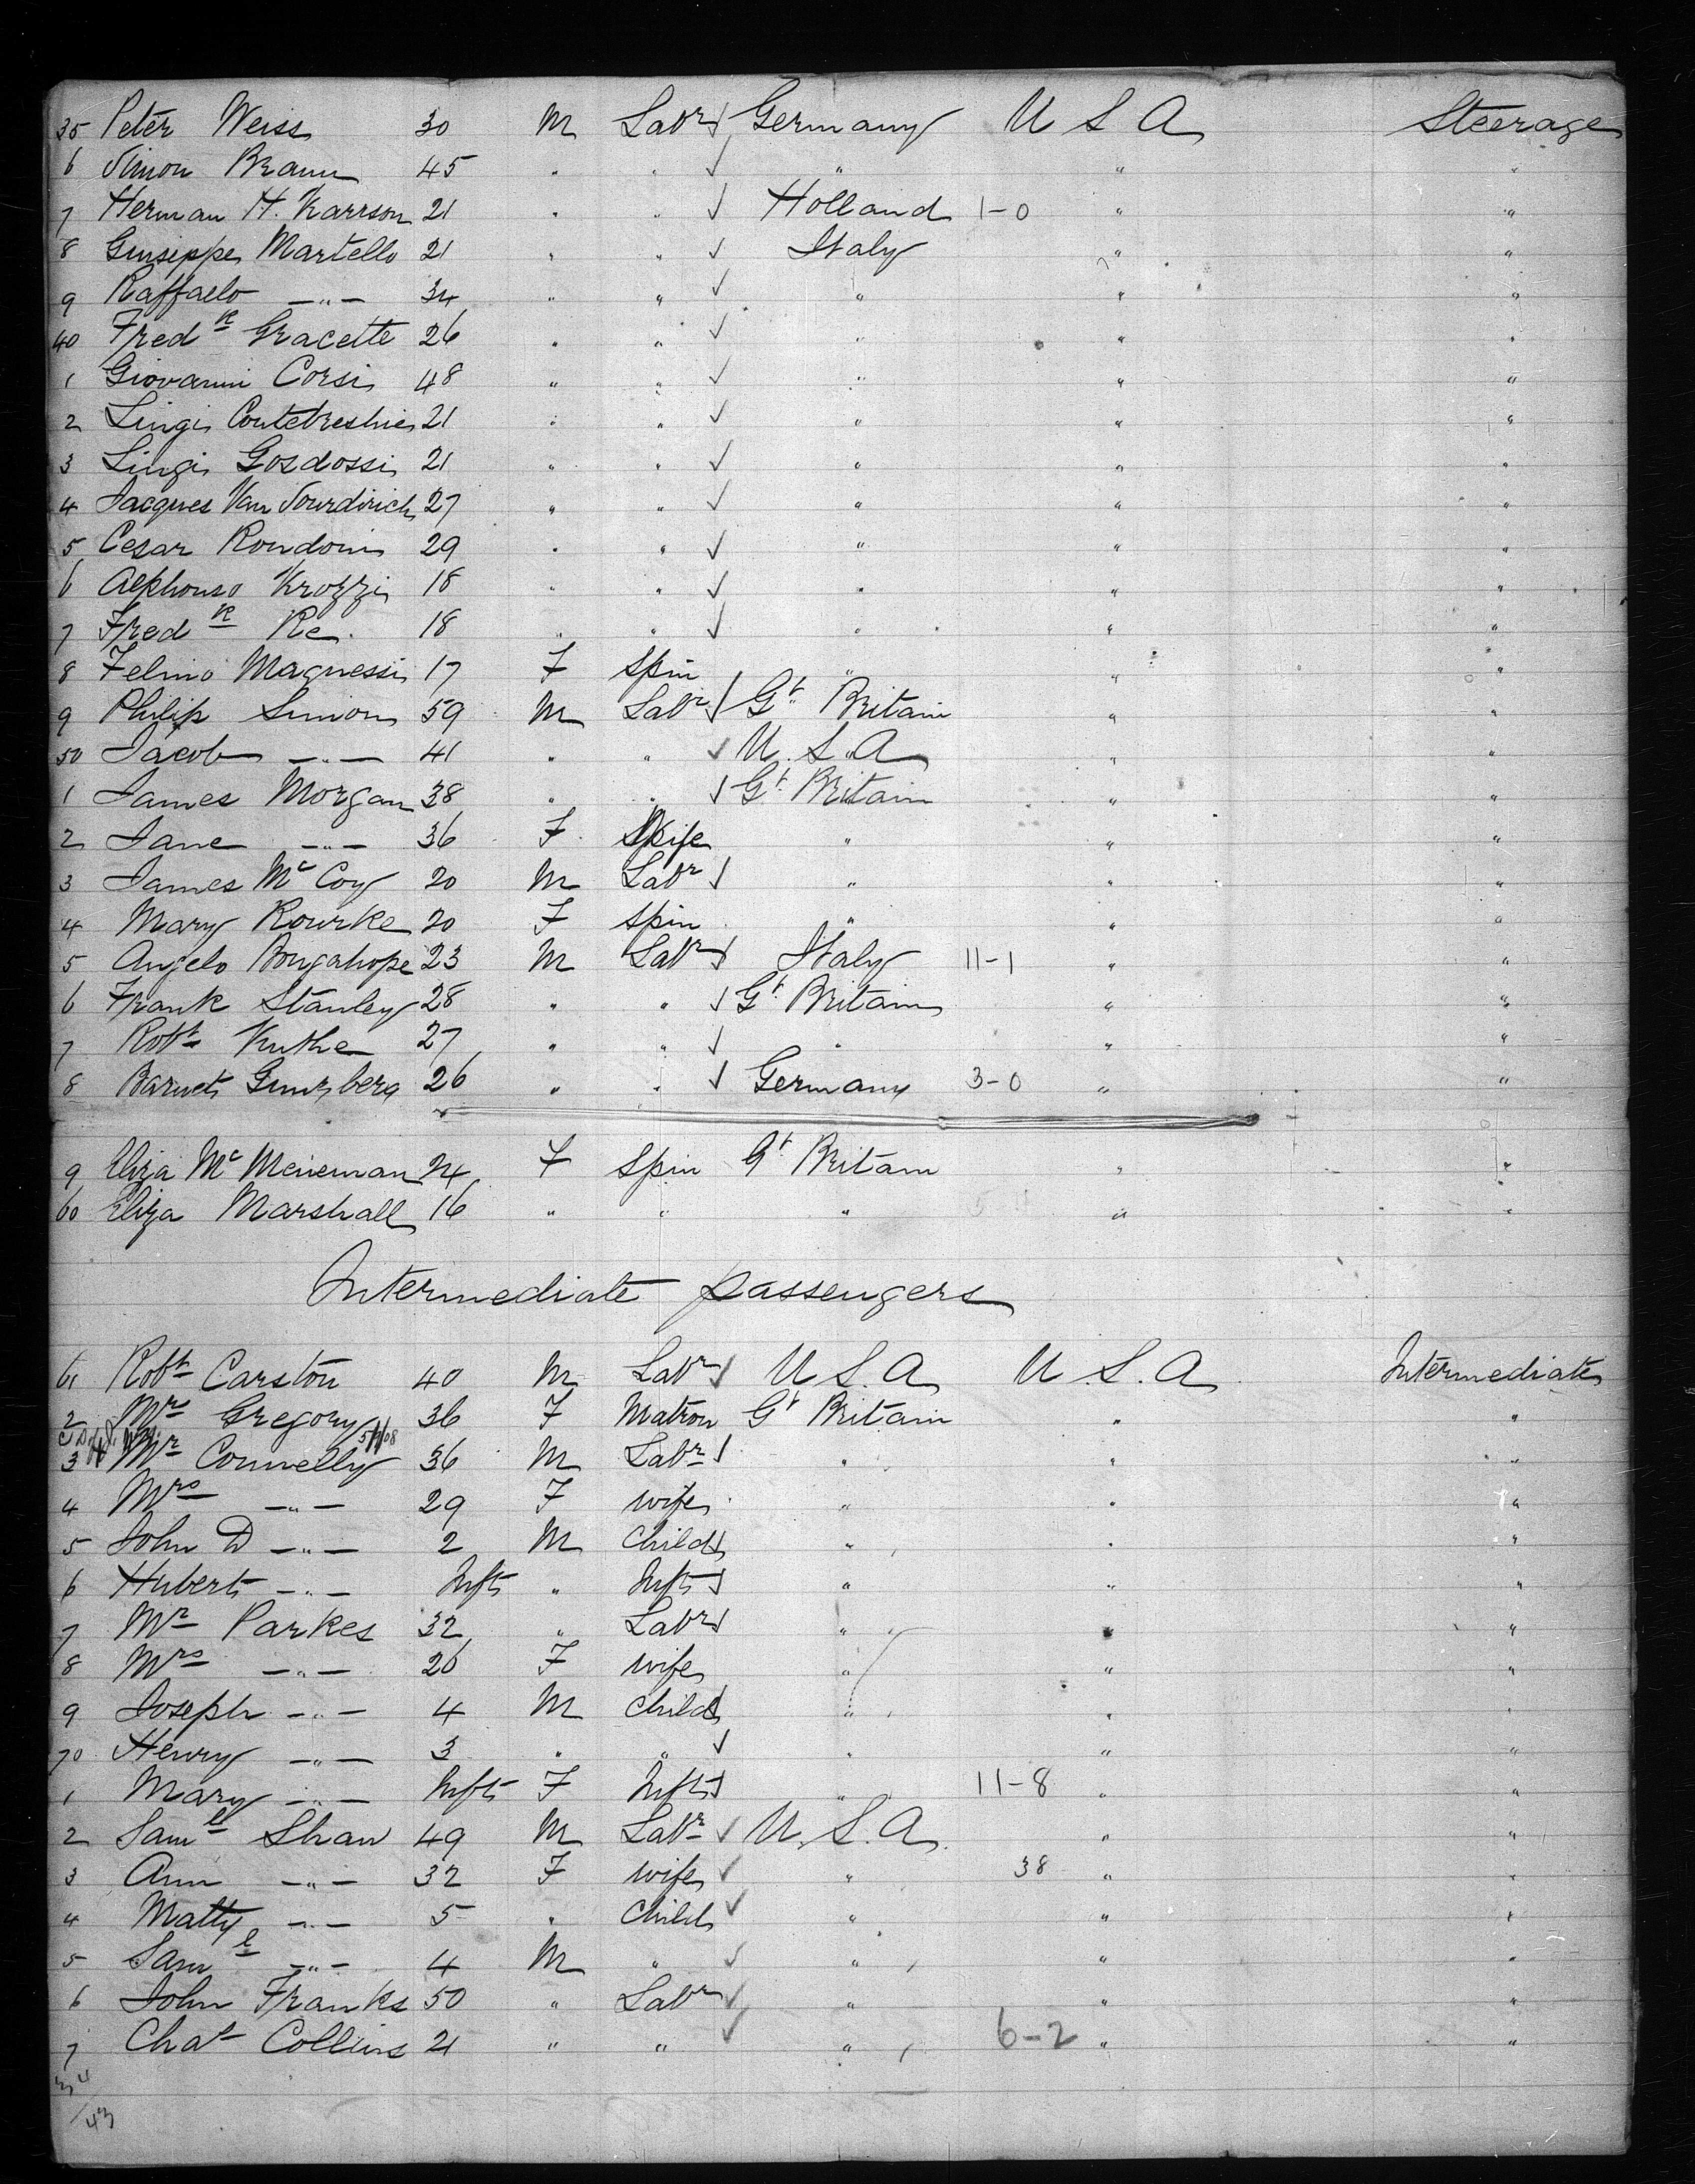 35 Peter Weiss 30 M Labr Germany U S A Steerage
6 Simon Braun 45 " " " " "
7 Herman H. Karrson 21 " " Holland 1-0 " "
8 Guiseppe Martello 21 " " Italy " "
9 Raffaelo -"- 34 " " " " "
40 Fredk Gracette 26 " " " " "
1 Giovanni Corsi 48 " " " " "
2 Lingi 21 " " " " "
3 Lingi Gosdossi 21 " " " " "
4 Jacques Van 27 " " " " "
5 Cesar Rondoni 29 " " " " "
6 Alphonso Krozzi 18 " " " " "
7 Fredk Re. 18 " " " " "
8 Felino Magnessi 17 F Spin " " "
9 Philip Simons 59 M Labr Gt Britain " "
50 Jacob -"- 41 " " U.S.A " "
1 James Morgan 38 " " Gt Britain " "
2 Jane -"- 36 F Wife " " "
3 James McCoy 20 M Labr " " "
4 Mary Rourke 20 F Spin " " "
5 Angelo Bongahope 23 M Labr Italy 11-1 " "
6 Frank Stanley 28 " " Gt Britain " "
7 Robt Kuthe 27 " " " " "
8 Barnet Gunzberg 26 " " Germany 3-0 " "
9 Eliza McMeneman 24 F Spin Gt Britain " "
60 Eliza Marshall 16 " " " " "
Intermediate passengers
61 Robt Carston 40 M Labr U S. A U. S. A Intermediate
2 Mrs Gregory 36 F Matron Gt Britain " "
3 Mr Connelly 36 M Labr " " "
4 Mrs -"- 29 F wife " " "
5 John D -"- 2 M Child " " "
6 Hubert -"- Inft " Inft " " "
7 Mr Parkes 32 " Labr " " "
8 Mrs -"- 26 F wife " " "
9 Joseph -"- 4 M Child " " "
70 Henry -"- 3 " " " " "
1 Mary -"- Inft F Inft " 11-8 " "
2 Saml Shaw 49 M Labr U. S. A. " "
3 Ann -"- 32 F wife " 38 " "
4 Matty -"- 5 " Child " " "
5 Saml -"- 4 M " " " "
6 John Franks 50 " Labr " " "
7 Chas Collins 21 " " " 6-2 " "
34
/43